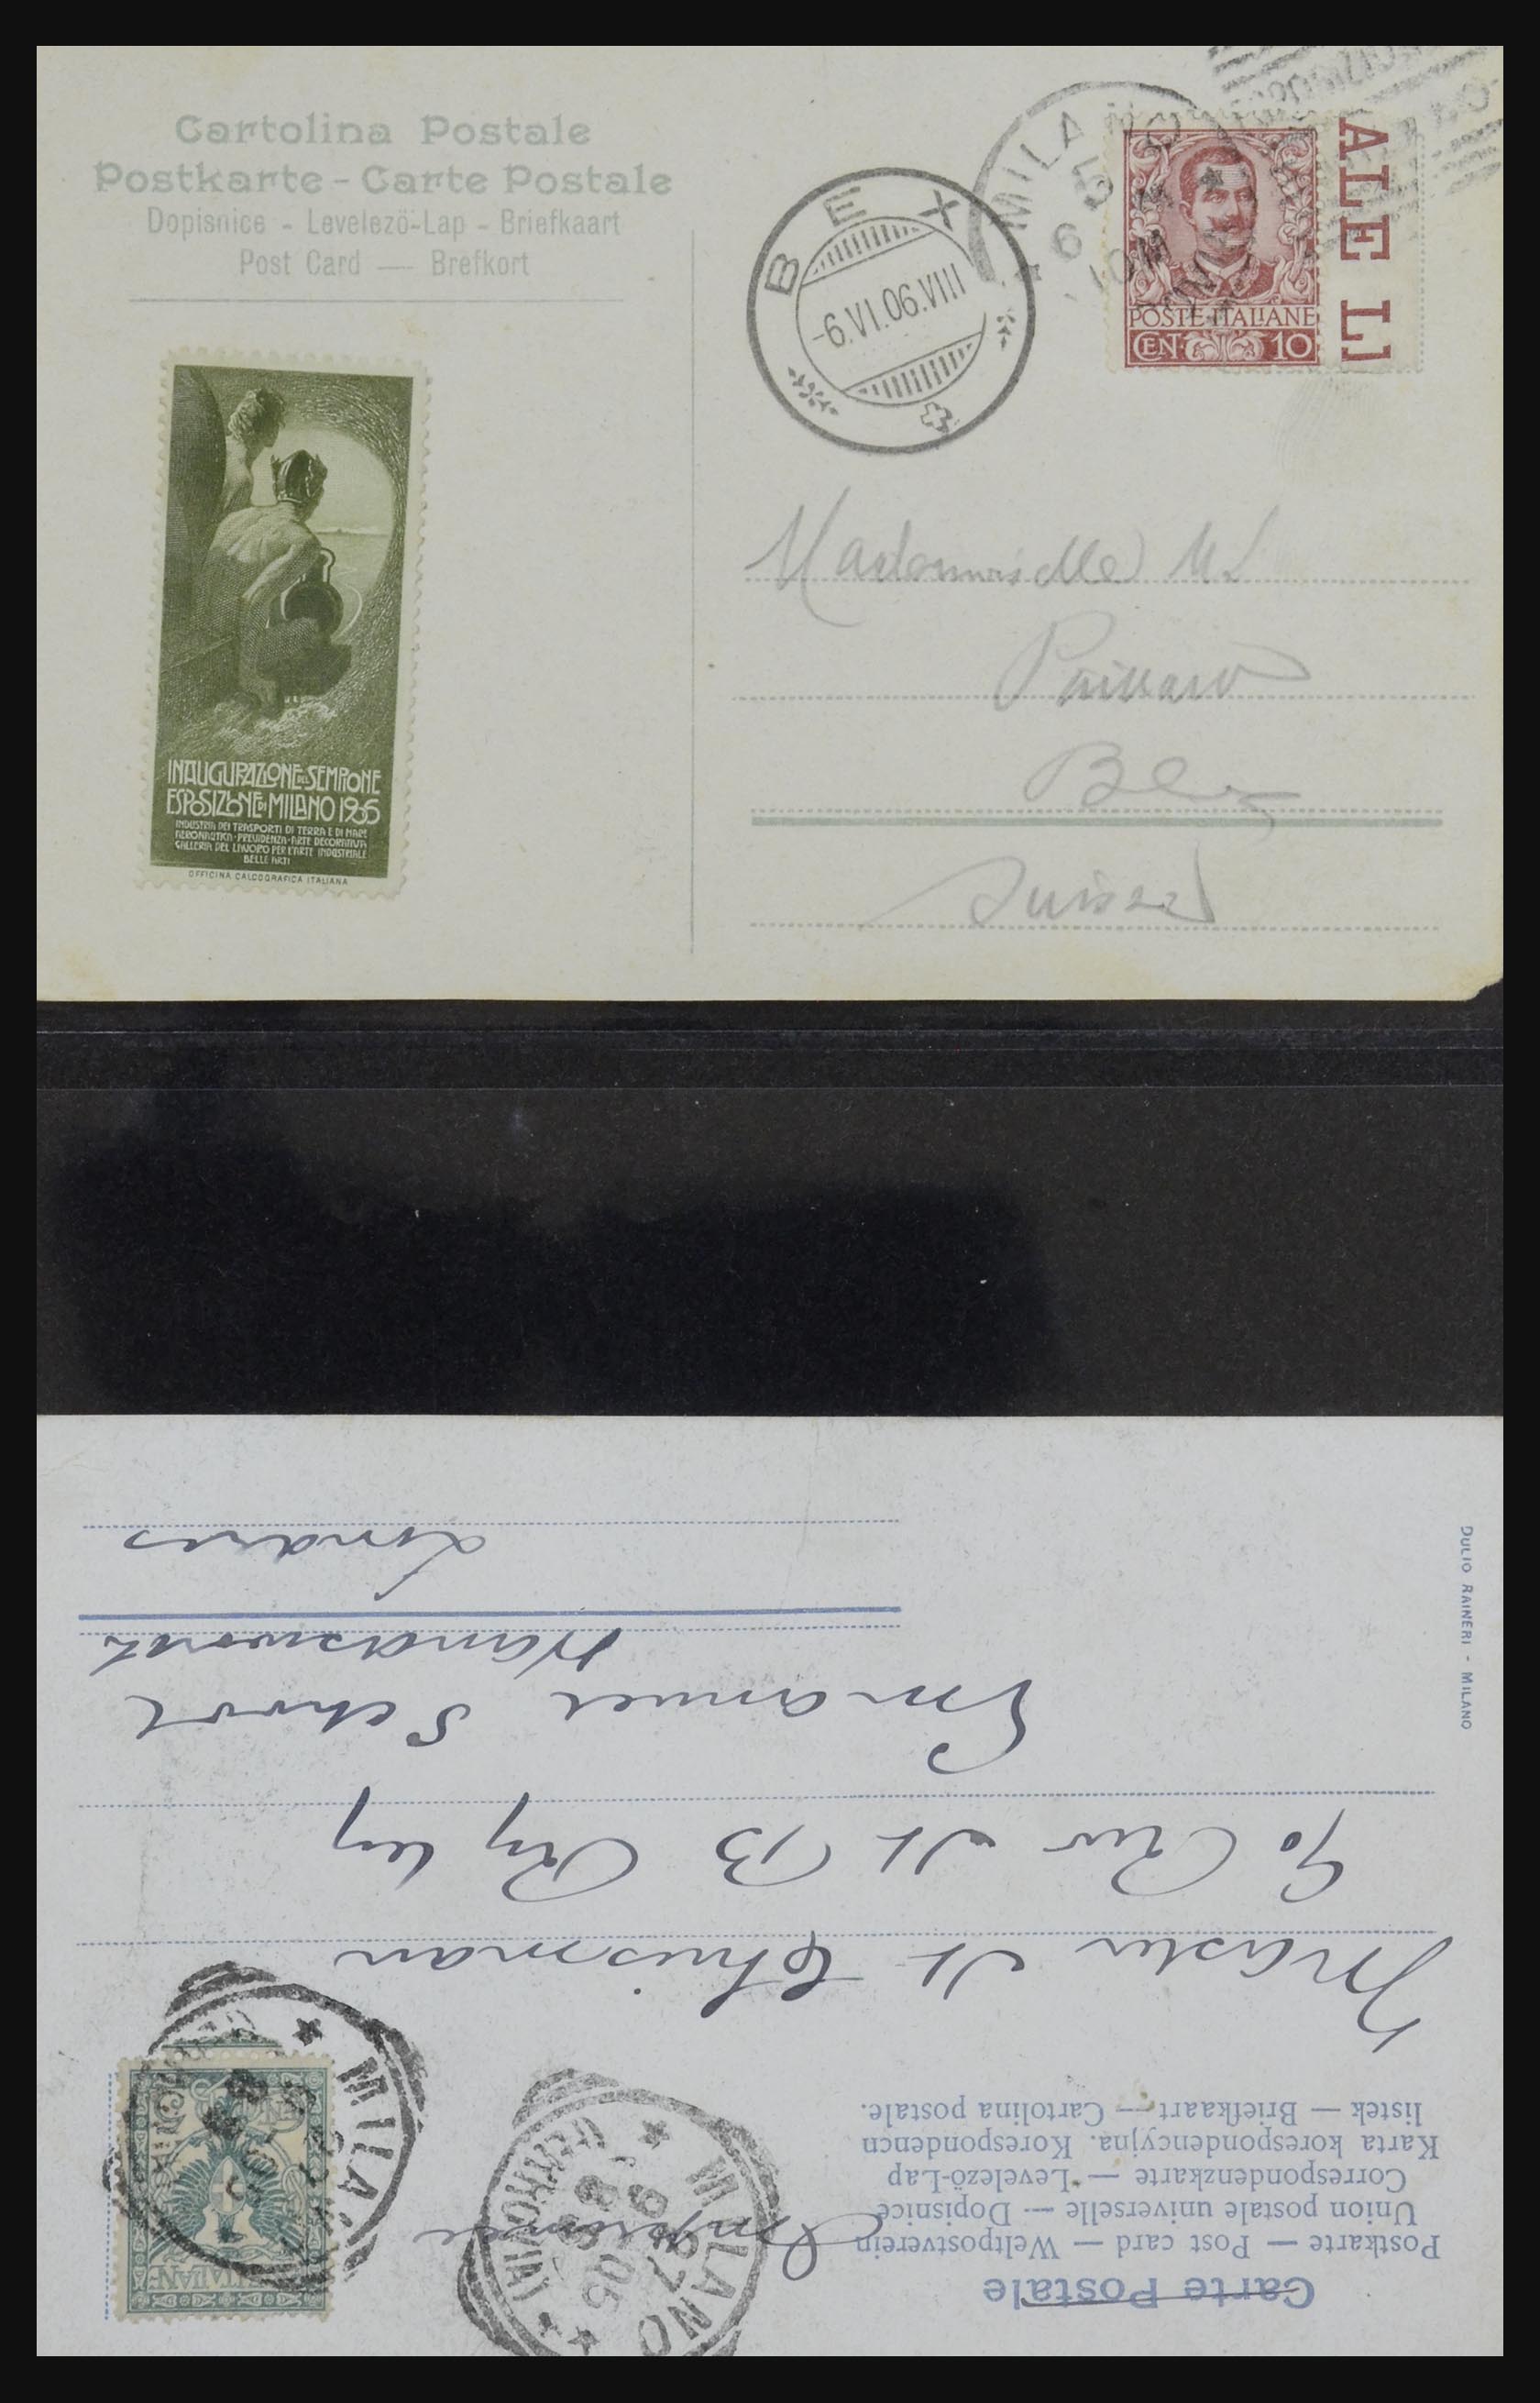 Cartolina Postale
Postkarte - Carte Postale
Dopisnice - Levelezö-Lap - Briefkaart
Post Card — Brefkort
BEX
-6.VI.06.VIII
MILA
POSTE·ITALIANE
CEN· 10
ALE LI
INAUGURAZIONE DEL SEMPIONE
ESPOSIZIONE DI MILANO 1906
INDUSTRIA DEI TRASPORTI DI TERRA E DI MARE
AERONAUTICA·PREVIDENZA·ARTE DECORATIVA
GALLERIA DEL LAVORO PER L'ARTE INDUSTRIALE
BELLE ARTI
OFFICINA CALCOGRAFICA ITALIANA
Mademoiselle ML
Bex
Suisse
Carte Postale
Postkarte — Post card — Weltpostverein
Union postale universelle — Dopisnice
Correspondenzkarte — Levelezö-Lap
Karta korespondencyjna. Korespondencn
listek — Briefkaart — Cartolina postale.
Imprimé
MILANO
7 05
MILANO
ITALIANE
Master H Chrisman
c/o Rev H B
Emanuel School
Wandsworth
Londres
DULIO RAINERI - MILANO